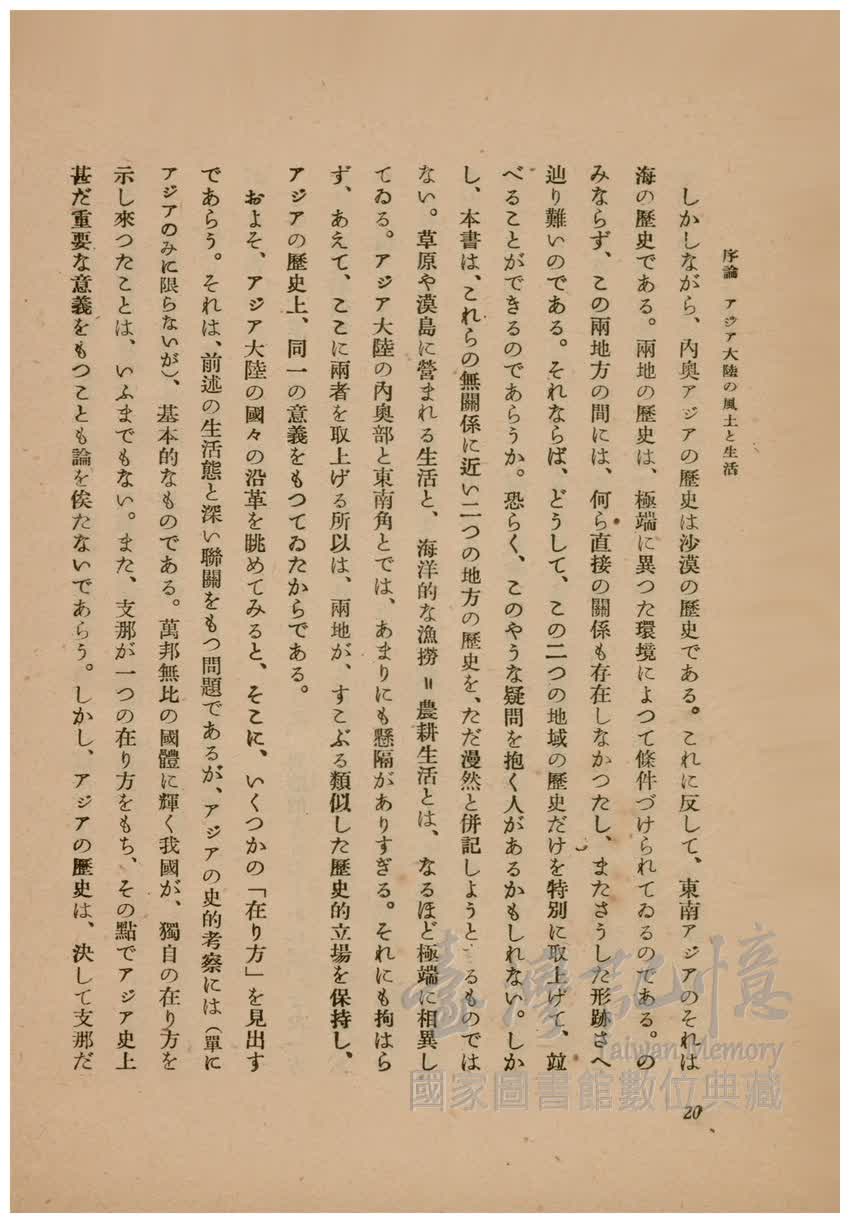 序論　アジア大陸の風土と生活
しかしながら、內奧アジアの歷史は沙漠の歷史である。これに反して、東南アジアのそれは
海の歷史である。兩地の歷史は、極端に異つた環境によつて條件づけられてゐるのである。の
みならず、この兩地方の間には、何ら直接の關係も存在しなかつたし、またさうした形跡さへ
辿り難いのである。それならば、どうして、この二つの地域の歷史だけを特別に取上げて、竝
べることができるのであらうか。恐らく、このやうな疑問を抱く人があるかもしれない。しか
し、本書は、これらの無關係に近い二つの地方の歷史を、ただ漫然と倂記しようと るものでは
ない。草原や漠島に營まれる生活と、海洋的な漁撈＝農耕生活とは、なるほど極端に相異し
てゐる。アジア大陸の內奧部と東南角とでは、あまりにも懸隔がありすぎる。それにも拘はら
ず、あえて、ここに兩者を取上げる所以は、兩地が、すこぶる類似した歷史的立場を保持し、
アジアの歷史上、同一の意義をもつてゐたからである。
およそ、アジア大陸の國々の沿革を眺めてみると、そこに、いくつかの「在り方」を見出す
であらう。それは、前述の生活態と深い聯關をもつ問題であるが、アジアの史的考察には（單に
アジアのみに限らないが）、基本的なものである。萬邦無比の國體に輝く我國が、獨自の在り方を
示し來つたことは、いふまでもない。また、支那が一つの在り方をもち、その點でアジア史上
甚だ重要な意義をもつことも論を俟たないであらう。しかし、アジアの歷史は、決して支那だ
20
臺灣記憶
Taiwan Memory
國家圖書館數位典藏